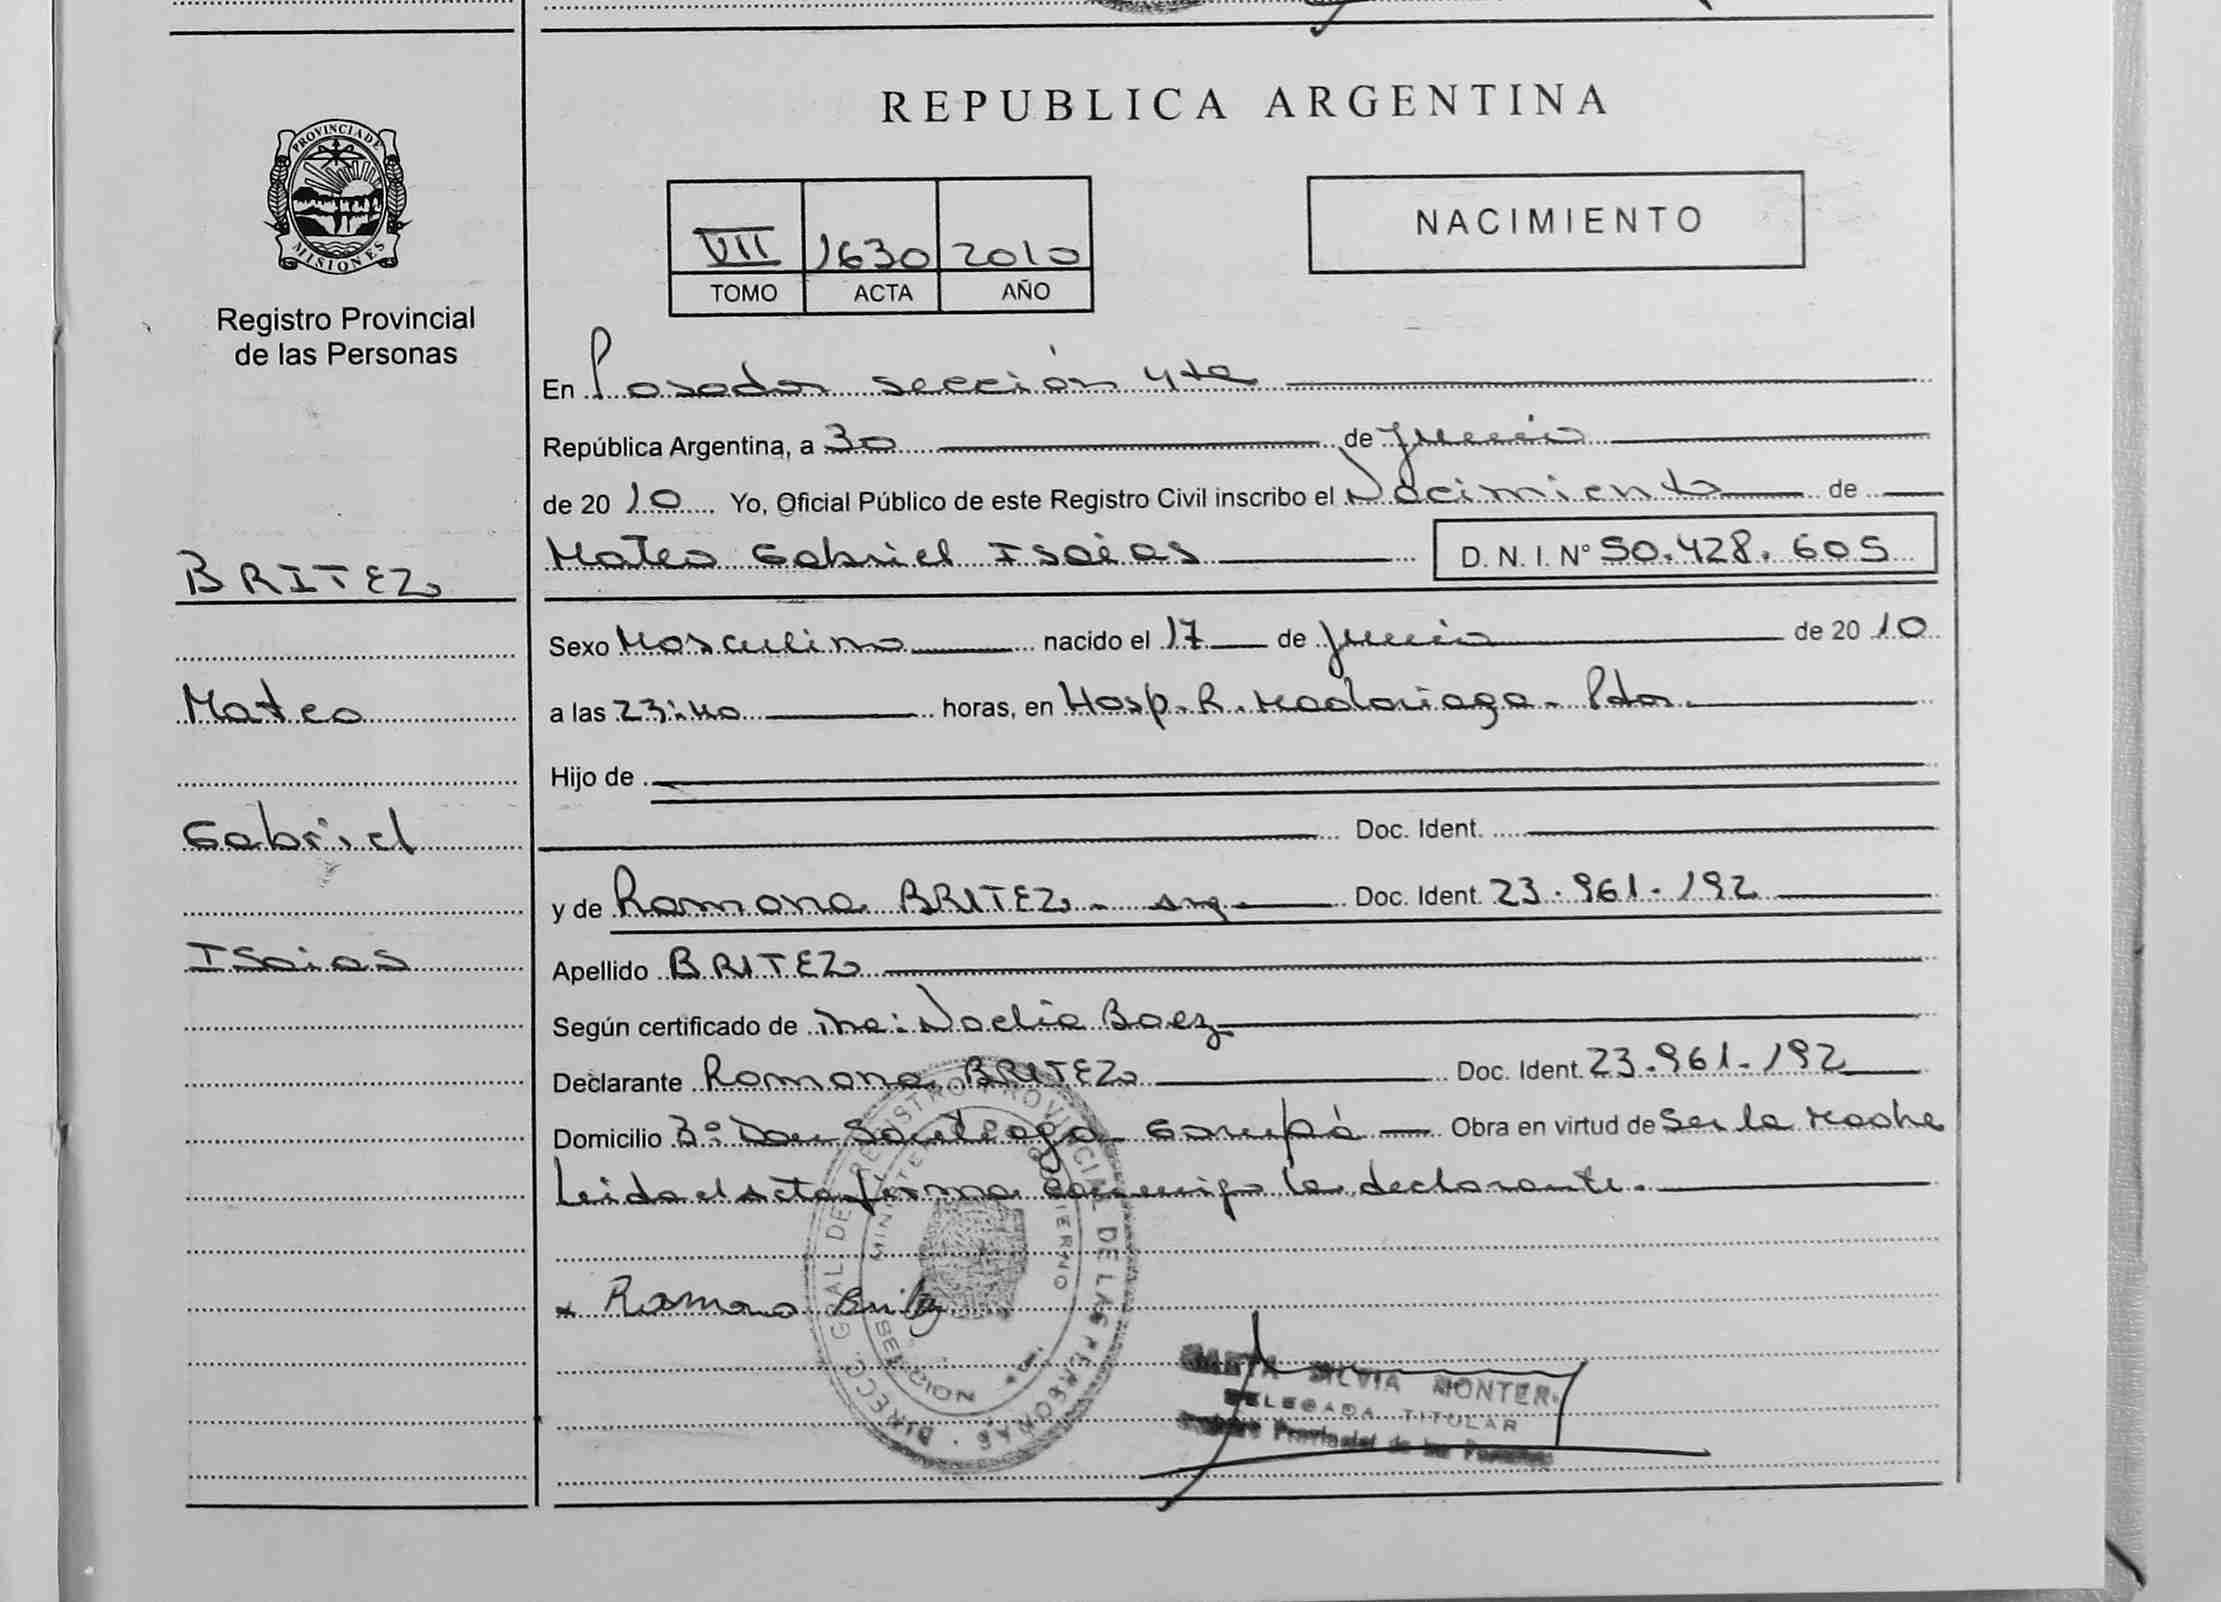 REPUBLICA ARGENTINA
PROVINCIA DE
MISIONES
Registro Provincial
de las Personas
VII 1630 2010
TOMO ACTA AÑO
NACIMIENTO
En Posadas sección 4ta
República Argentina, a 30 de Junio
de 2010 Yo, Oficial Público de este Registro Civil inscribo el Nacimiento de
BRITEZ
Mateo Gabriel Isaías D. N. I. N° 50.428.605
Sexo Masculino nacido el 17 de Junio de 2010
Mateo
a las 23:40 horas, en Hosp. R. Madariaga - Pdas.
Hijo de
Gabriel
Doc. Ident.
y de Ramona BRITEZ - Doc. Ident. 23.961.192
Isaias
Apellido BRITEZ
Según certificado de Noelia Baez
Declarante Ramona BRITEZ Doc. Ident. 23.961.192
Domicilio B° Don Santiago - Garupá Obra en virtud de Ser la Madre
Leida el acta firma conmigo la declarante.
Ramona Britez
DIRECC. GRAL DE REGISTRO PROVINCIAL DE LAS PERSONAS
MINISTERIO DE GOBIERNO
MISIONES
SILVIA MONTER
DELEGADA TITULAR
Provincial de las Personas